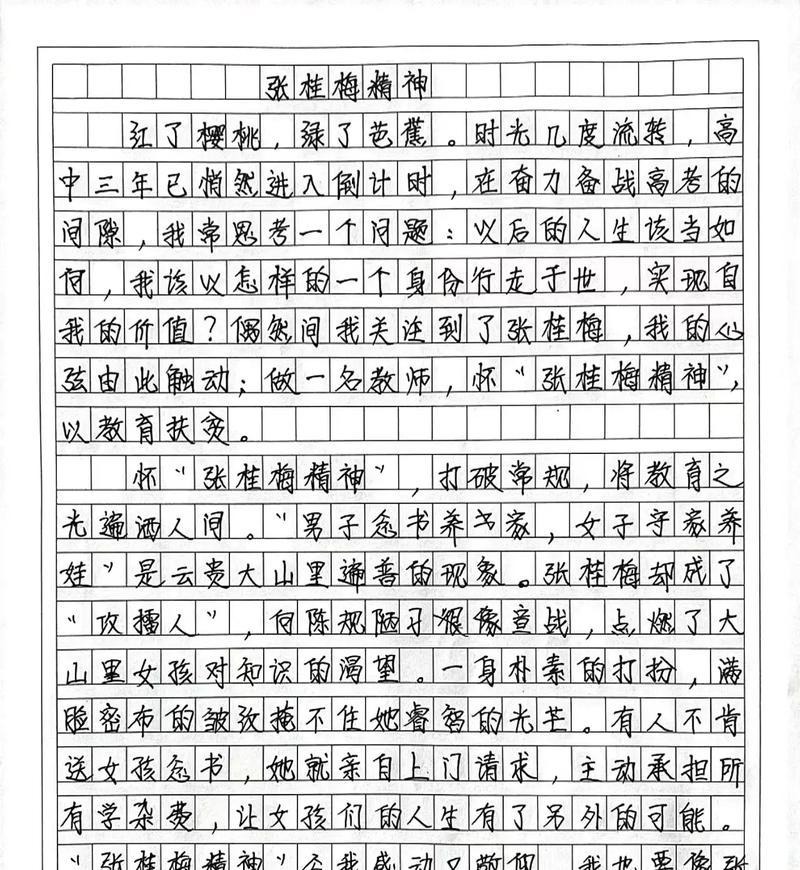 张桂梅精神
红了樱桃，绿了芭蕉。时光几度流转，高
中三年已悄然进入倒计时，在奋力备战高考的
间隙，我常思考一个问题：以后的人生该当如
何，我该以怎样的一个身份行走于世，实现自
我的价值？偶然间我关注到了张桂梅，我的心
弦由此触动；做一名教师，怀“张桂梅精神”，
以教育扶贫。
怀“张桂梅精神”，打破常规，将教育之
光遍洒人间。“男子念书养家，女子守家养
娃”是云贵大山里遍普的现象。张桂梅却成了
“攻擂人”，向陈规陋习狠像宣战，点燃了大
山里女孩对知识的渴望。一身朴素的打扮，满
脸密布的皱纹掩不住她睿智的光芒。有人不肯
送女孩念书，她就亲自上门请求，主动承担所
有学杂费，让女孩们的人生有了另外的可能。
“张桂梅精神”令我感动又敬仰，我也要像张